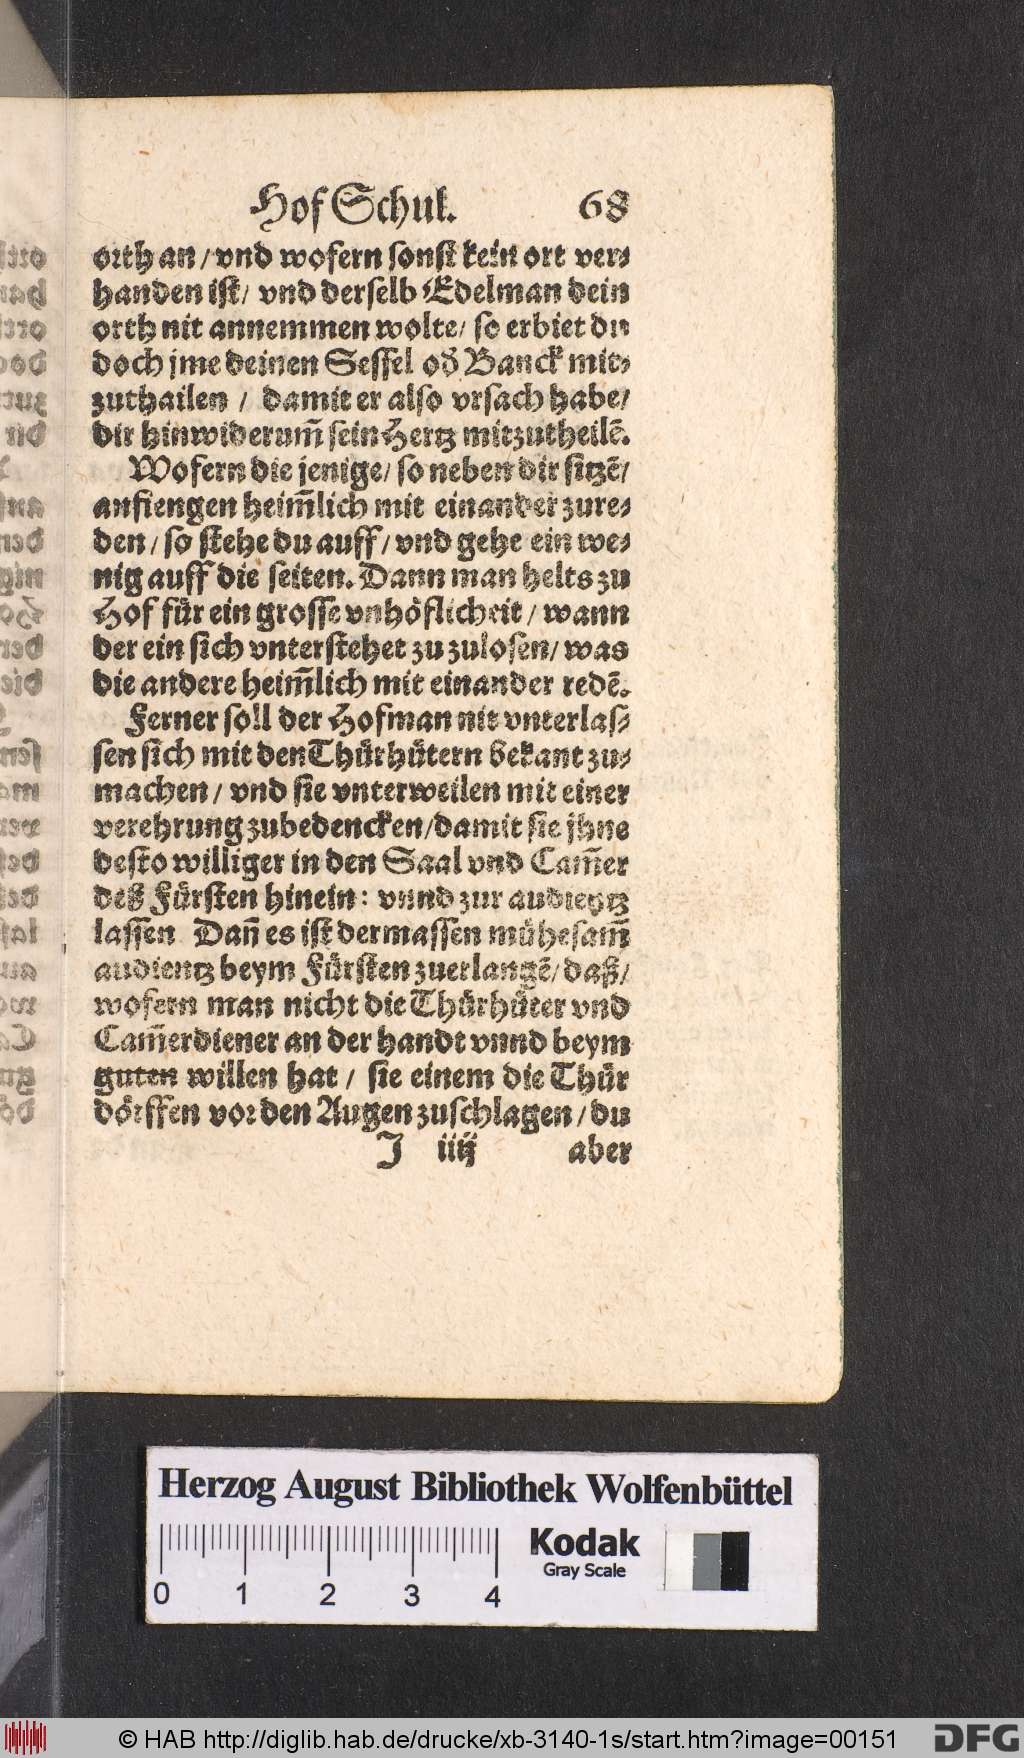 Hof Schul. 68
orth an / vnd wofern sonst kein ort ver⸗
handen ist / vnd derselb Edelman dein
orth nit annemmen wolte / so erbiet du
doch jme deinen Sessel od̕ Banck mit⸗
zuthailen / damit er also vrsach habe /
dir hinwiderum̃ sein Hertz mitzutheilẽ.
Wofern die jenige / so neben dir sitzẽ /
anfiengen heim̃lich mit einander zure⸗
den / so stehe du auff / vnd gehe ein we⸗
nig auff die seiten. Dann man helts zu
Hof für ein grosse vnhöflicheit / wann
der ein sich vnterstehet zu zulosen / was
die andere heim̃lich mit einander redẽ.
Ferner soll der Hofman nit vnterlas⸗
sen sich mit den Thürhütern bekant zu⸗
machen / vnd sie vnterweilen mit einer
verehrung zubedencken / damit sie jhne
desto williger in den Saal vnd Cam̃er
deß Fürsten hinein : vnnd zur audientz
lassen Dañ es ist dermassen mühesam̃
audientz beym Fürsten zuerlangẽ / daß /
wofern man nicht die Thürhüter vnd
Cam̃erdiener an der handt vnnd beym
guten willen hat / sie einem die Thür
dörffen vor den Augen zuschlagen / du
J iiij aber
Herzog August Bibliothek Wolfenbüttel
0 1 2 3 4
Kodak
Gray Scale
© HAB http://diglib.hab.de/drucke/xb-3140-1s/start.htm?image=00151
DFG